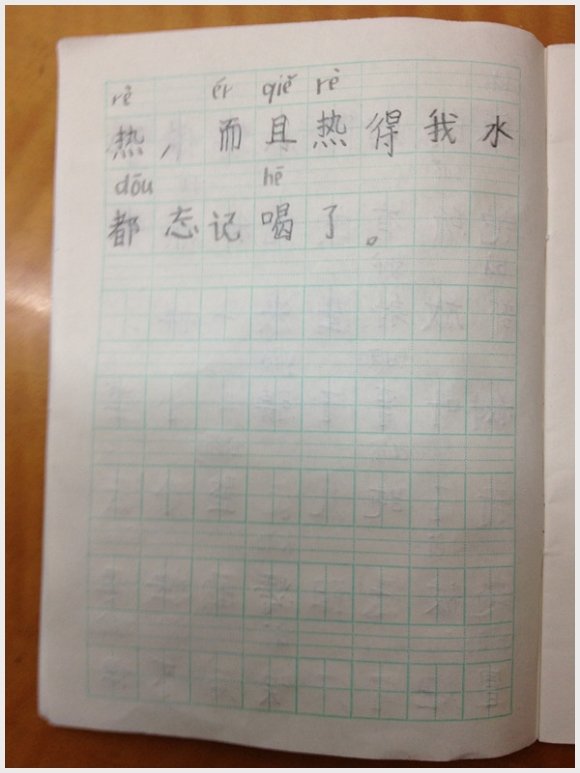 rè ér qiě rè
热，而且热得我水
dōu hē
都忘记喝了。